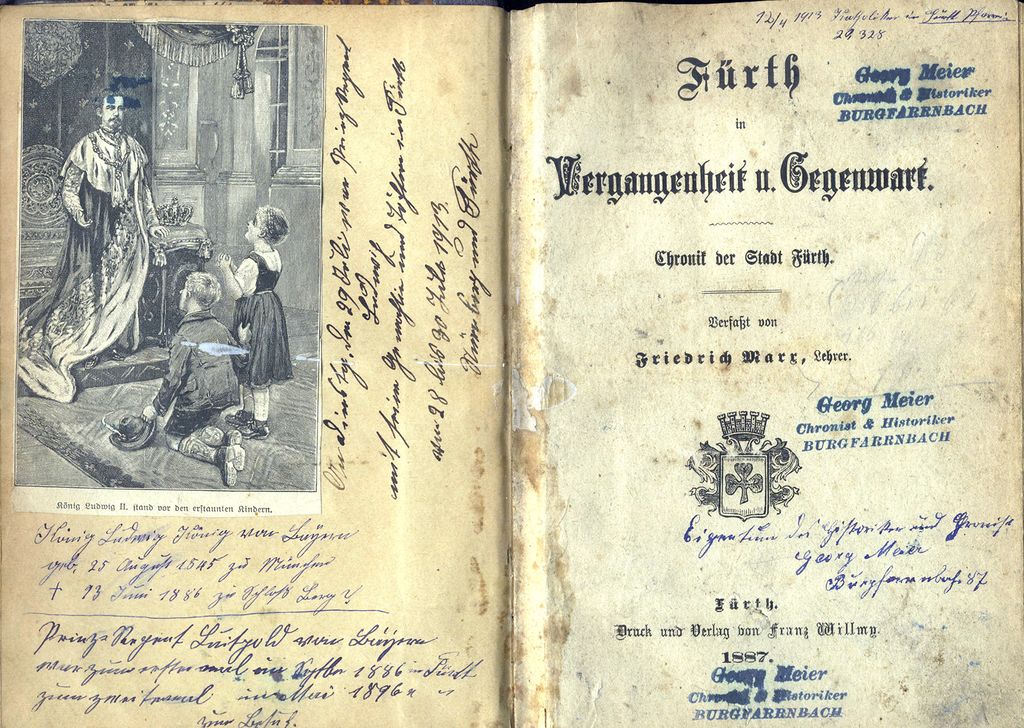 König Ludwig II. stand vor den erstaunten Kindern.
König Ludwig König von Bayern
geb. 25 August 1845 zu München
† 13 Juni 1886 zu Schloß Berg
Prinz Regent Luitpold von Bayern
war zum ersten mal im Septbr 1886 in Fürth
zum zweitenmal im Mai 1896
zum Besuch.
Dienstag, den 29 Juli war Prinz Regent
Ludwig
mit seiner Gemahlin und Töchtern in Fürth
vom 28 bis 30 Juli 1913
Nürnberg und Fürth
12/4 1913 Katholiken in Fürth
29 328
Fürth
in
Vergangenheit u. Gegenwart.
Chronik der Stadt Fürth.
Verfaßt von
Friedrich Marx, Lehrer.
Georg Meier
Chronist & Historiker
BURGFARRNBACH
Georg Meier
Chronist & Historiker
BURGFARRNBACH
Eigentum des Historiker und Chronist
Georg Meier
Burgfarrnbach 87
Fürth.
Druck und Verlag von Franz Willmy.
1887.
Georg Meier
Chronist & Historiker
BURGFARRNBACH